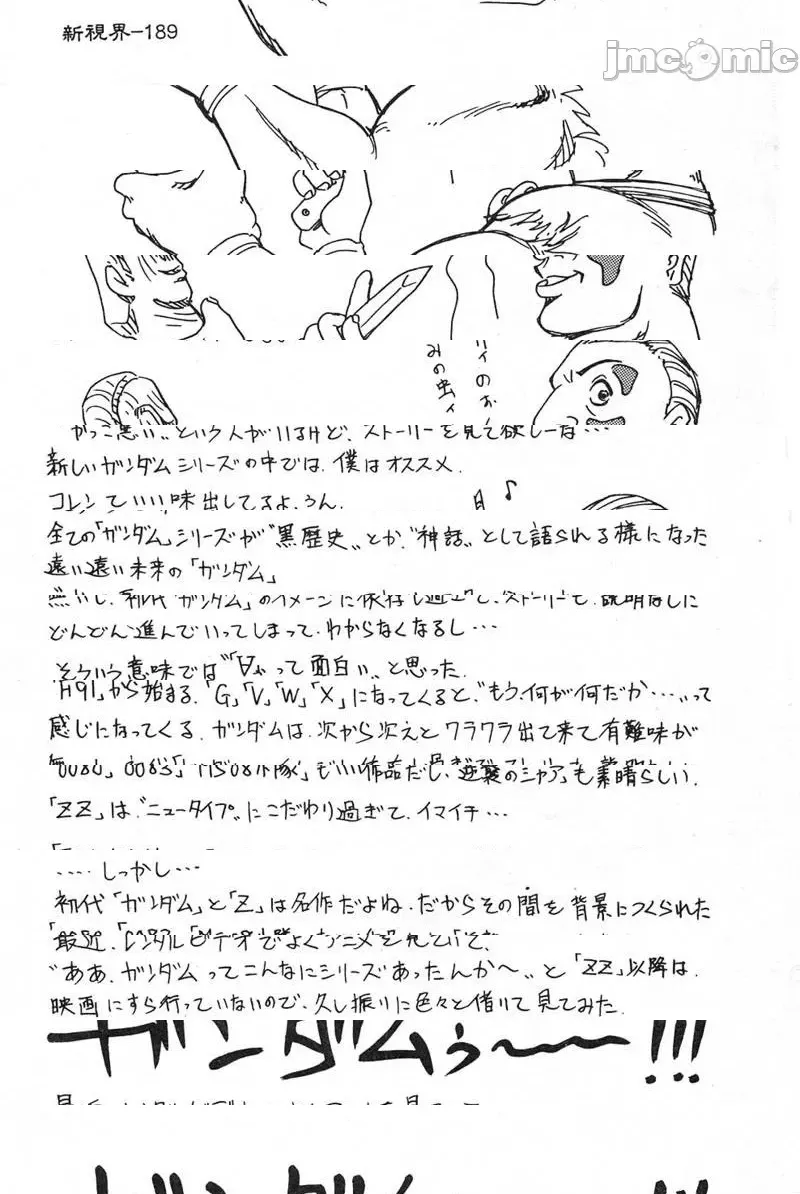 新視界-189
jmcomic
みの虫ィ
かっこ悪い〟という人がいるけど、ストーリーを見て欲しーな…
新しいガンダムシリーズの中では、僕はオススメ.
コレンていい味出してるよ、うん.
♪
全ての「ガンダム」シリーズが〝黒歴史〟とか、〝神話〟として語られる様になった
遠い遠い未来の「ガンダム」
どんどん進んでいってしまって、わからなくなるし…
そういう意味では〝∀〟って面白い〟と思った.
から始まる.「G」「V」「W」「X」になってくると、〝もう、何が何だか…〟って
感じになってくる、ガンダムは、次から次えとワラワラ出て来て有難味が
もいい作品だし、逆襲のシャア」も素晴らしい.
「ZZ」は〝ニュータイプ〟にこだわり過ぎて、イマイチ…
…しっかし…
初代「ガンダム」と「Z」は名作だよね.だからその間を背景につくられた
最近、レンタルビデオでよくアニメを見ていて、
〝ああ、ガンダムってこんなにシリーズあったんか〜〟と「ZZ」以降は、
映画にすら行っていないので、久し振りに色々と借りて見てみた.
ガンダムぅ〜〜!!!